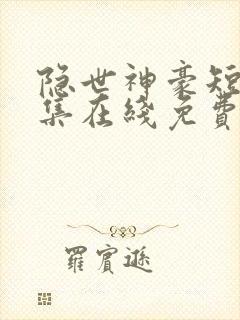 隐世神豪短
集在綫免費
羅賓遜